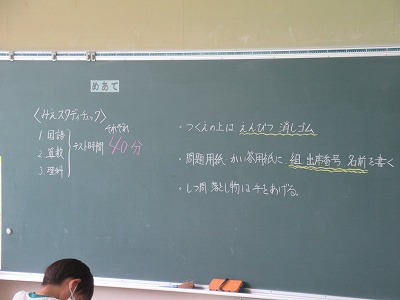 めあて
〈みえスタディチェック〉
それぞれ
1 国語
2. 算数 テスト時間 40分
3. 理科
・つくえの上は えんぴつ 消しゴム
・問題用紙・かい答用紙に 組 出席番号 名前を書く
・しつ問 落とし物は手をあげる。